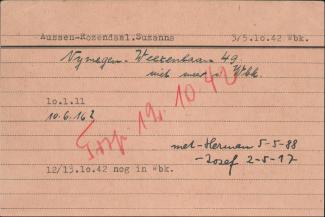 Aussen-Rozendaal.Suzanna 3/5.10.42 Wbk.
Nymegen. Weezenlaan 49
niet meer i. Wbk.
10.1.11
10.6.162
Tosp. 19. 10 42
met-Herman 5-5-88
-Josef 2-5-17
12/13.10.42 nog in Wbk.